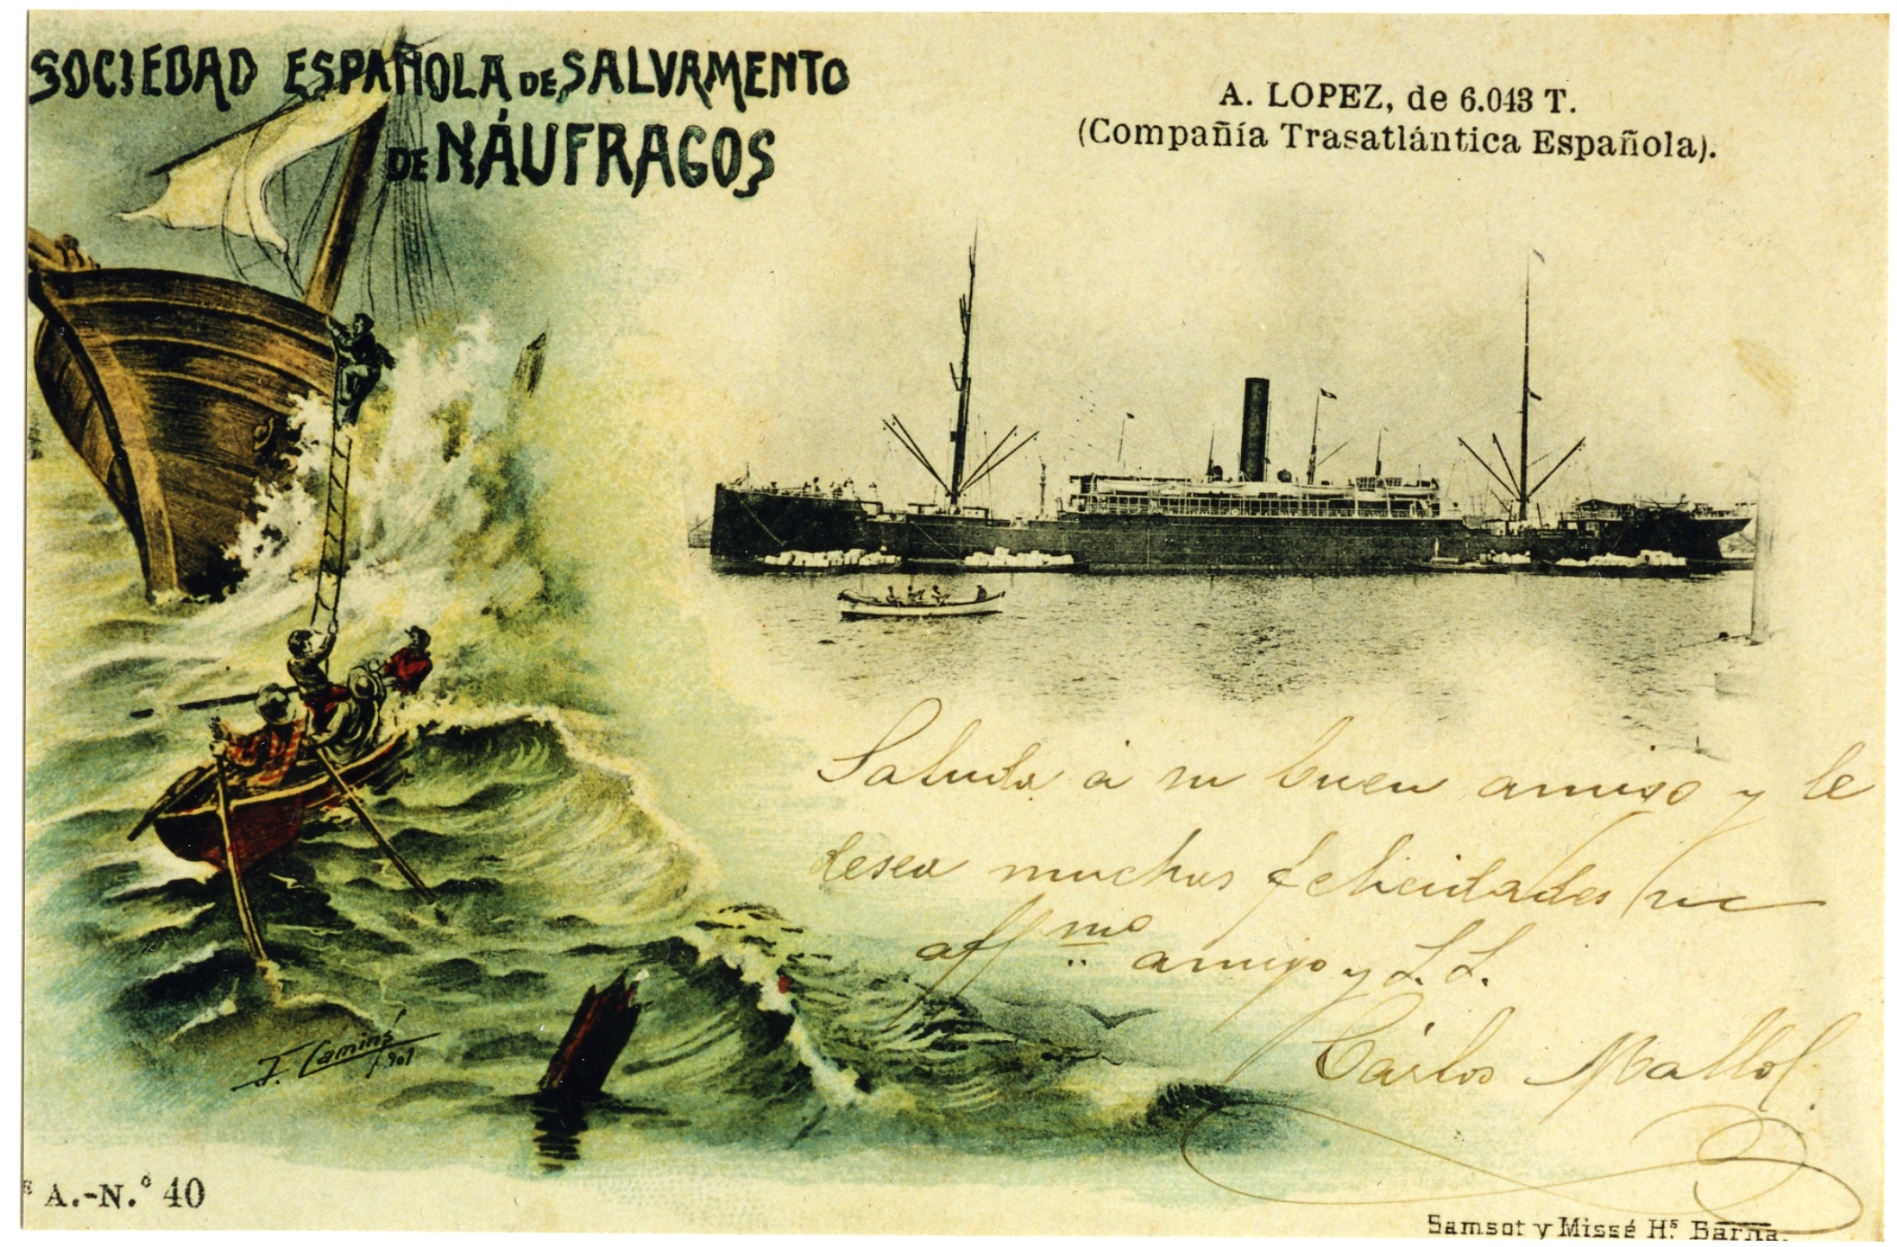 SOCIEDAD ESPAÑOLA DE SALVAMENTO
DE NÁUFRAGOS
A. LOPEZ, de 6.043 T.
(Compañía Trasatlántica Española).
Saluda á su buen amigo y le
desea muchas felicidades su
aff mo amigo y S. S.
Cárlos Mallol.
J. Camins
1907
E A.-N.º 40
Samsot y Missé Hs. Barna.